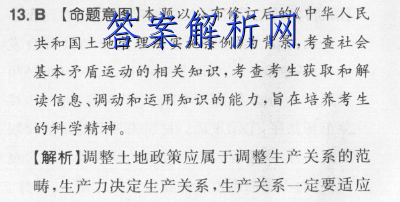 13. B 【命题意图】本题以公布修订后的《中华人民
共和国土地管理法实施条例》为背景,考查社会
基本矛盾运动的相关知识,考查考生获取和解
读信息、调动和运用知识的能力,旨在培养考生
的科学精神。
【解析】调整土地政策应属于调整生产关系的范
畴,生产力决定生产关系,生产关系一定要适应
答案解析网